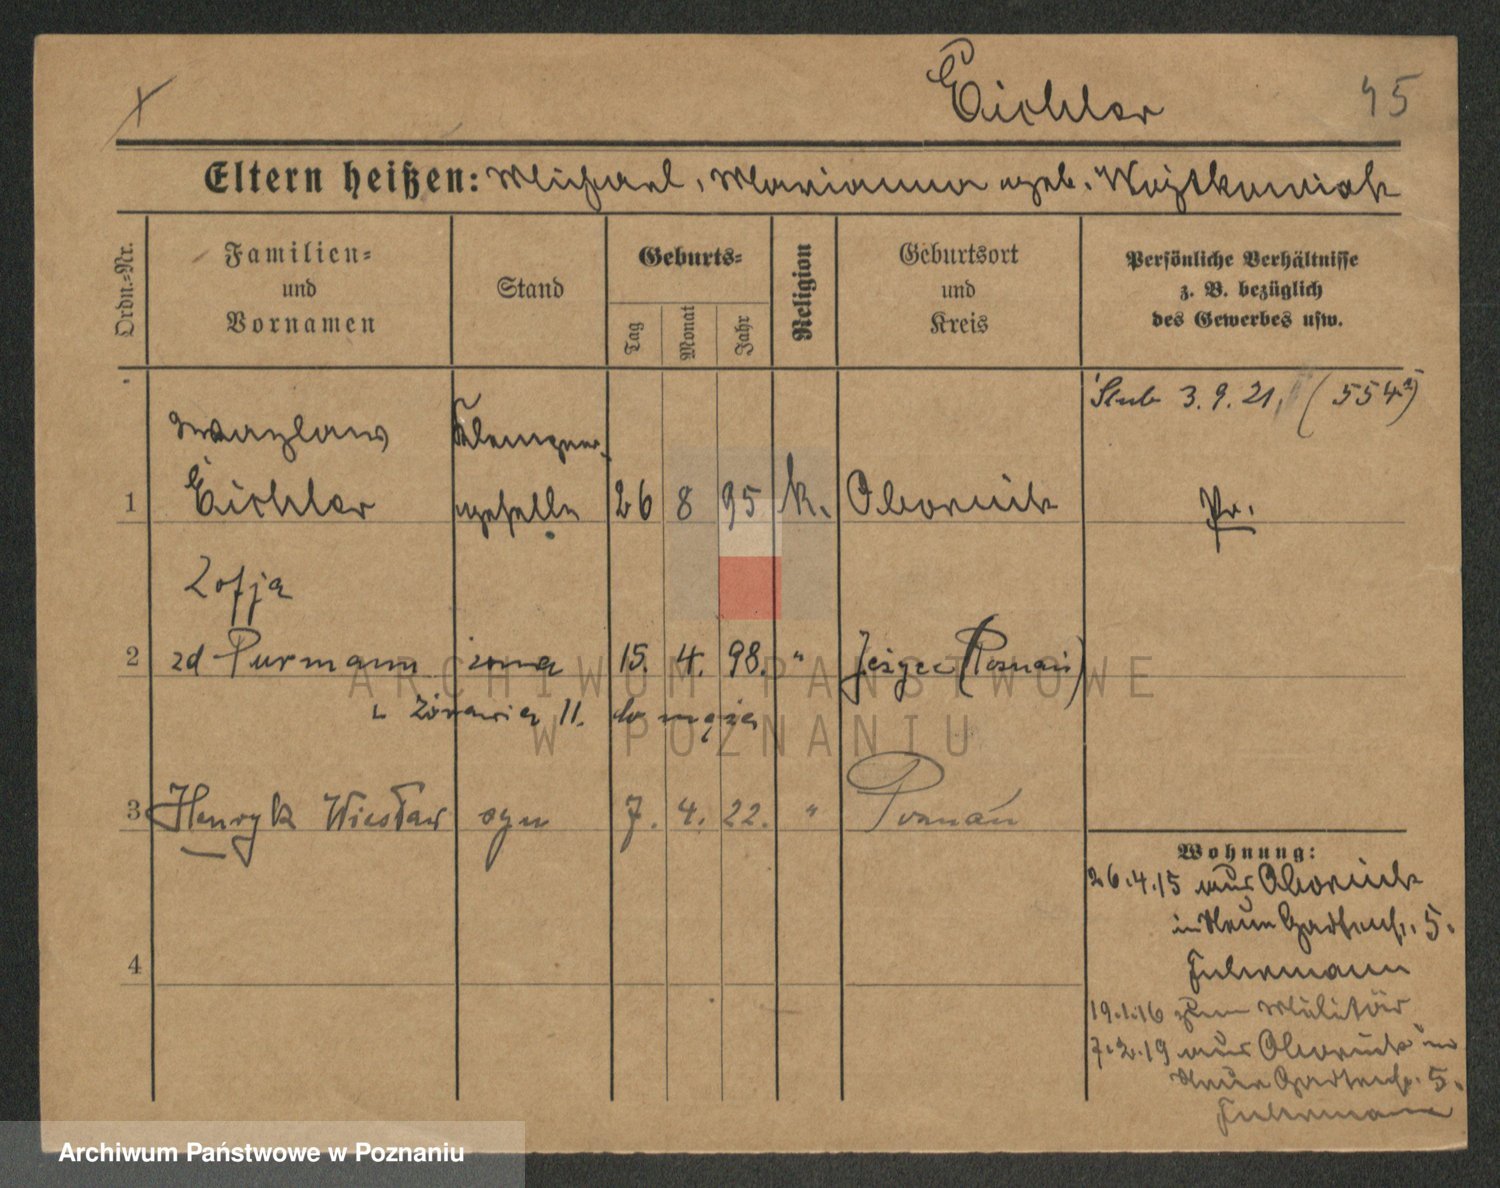 Eichler 45
Eltern heißen: Michael, Marianna geb. Wojtkowiak
Ordn.=Nr.
Familien=
und
Vornamen
Stand
Geburts=
Tag
Monat
Jahr
Religion
Geburtsort
und
Kreis
Persönliche Verhältnisse
z. B. bezüglich
des Gewerbes usw.
Ślub 3.9.21. (554)
Wazlaw Klempner-
1 Eichler geselle 26 8 95 k. Obornik Pr.
Zofja
2 zd Purmann żona 15. 4. 98. " Jeżyce (Poznań)
Żórawia 11. do męża
3 Henryk Wiesław syn 7. 4. 22. " Poznań
4
Wohnung:
26.4.15 aus Obornik
in Neue Gartenstr. 5.
Fuhrmann
19.1.16 zum Militär
7.2.19 aus Obornik in
Neue Gartenstr. 5.
Fuhrmann
ARCHIWUM PAŃSTWOWE
W POZNANIU
Archiwum Państwowe w Poznaniu